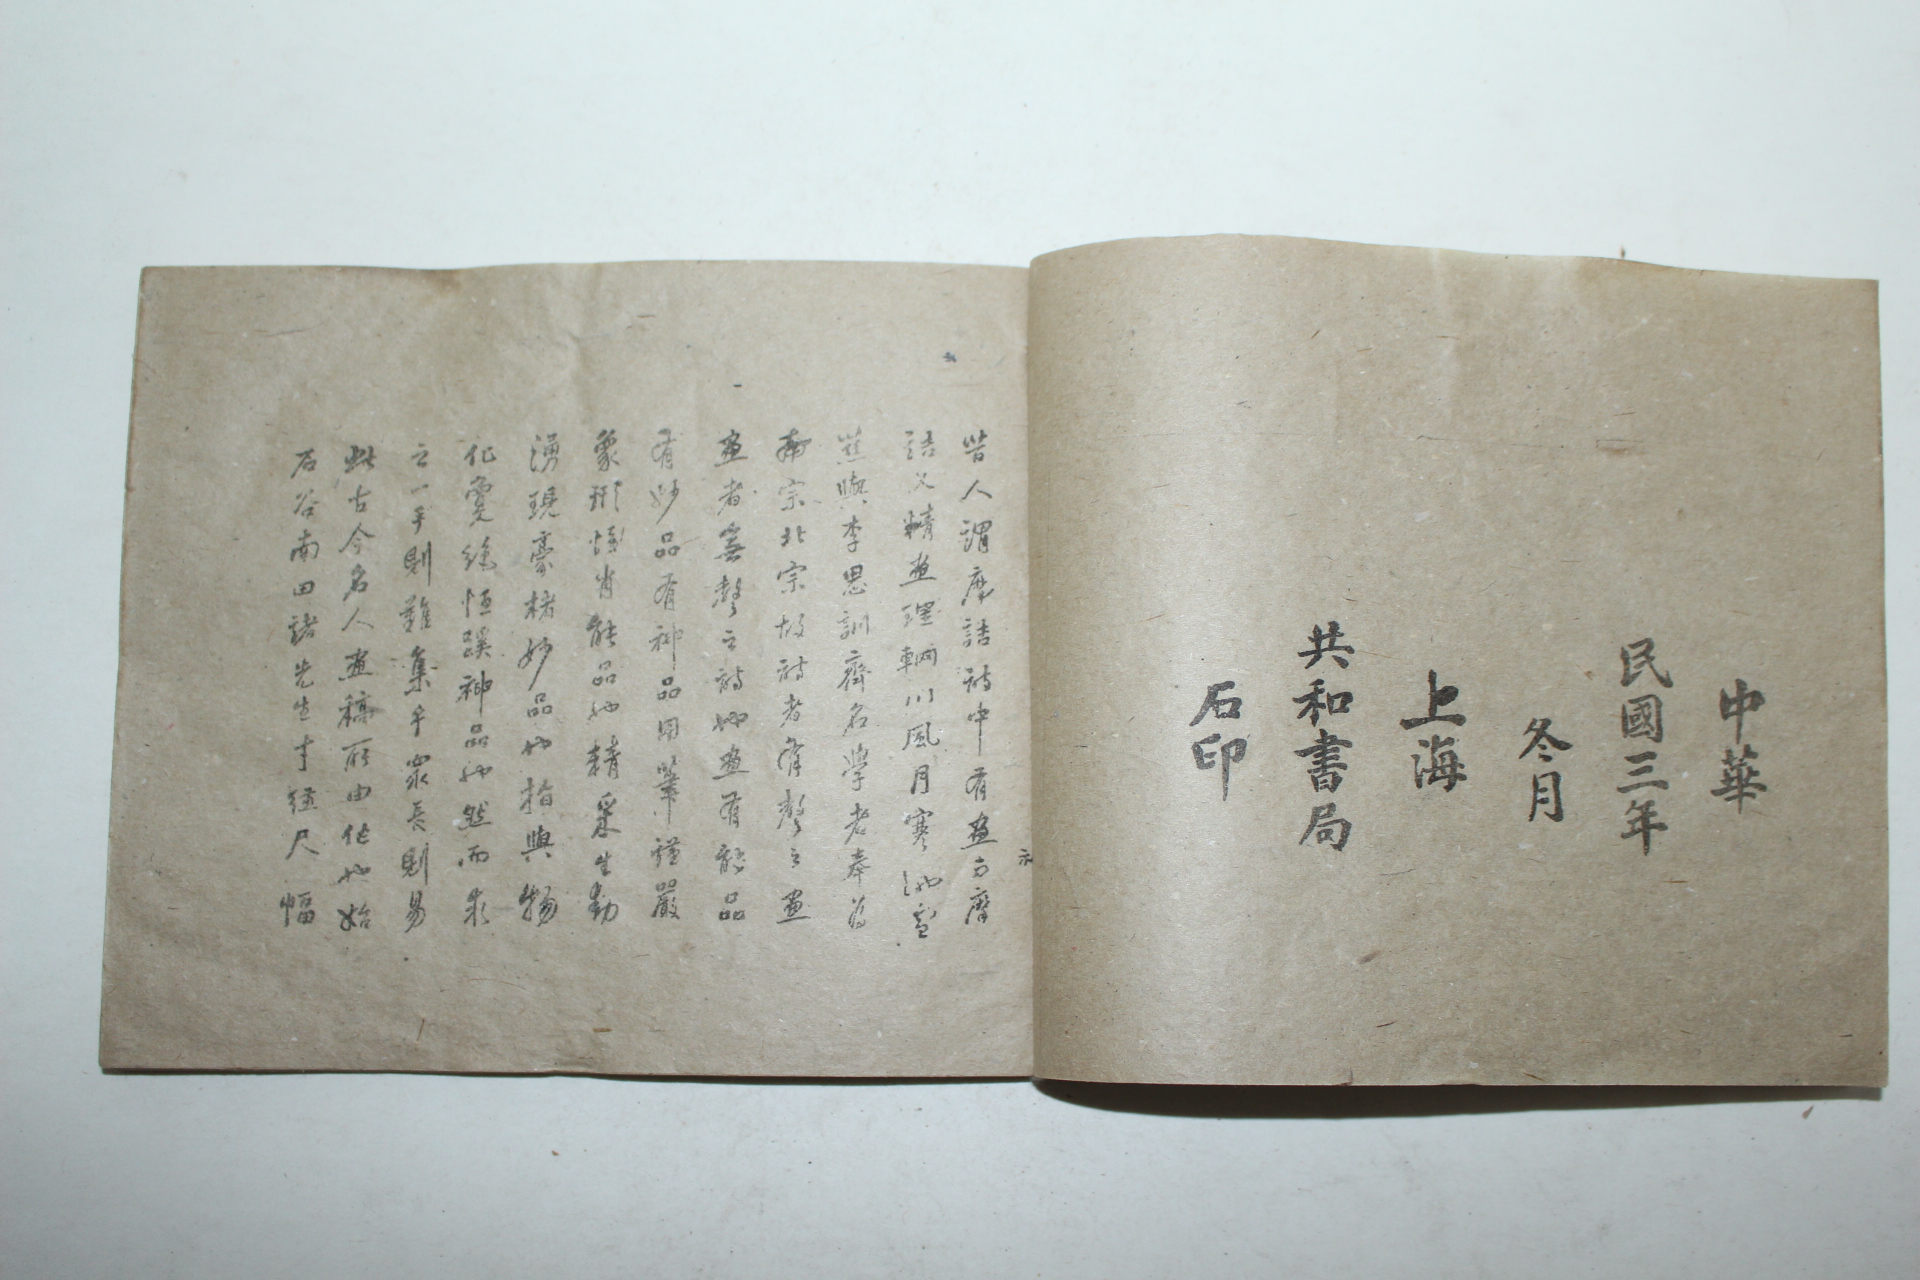 中華
民國三年
冬月
上海
共和書局
石印
昔人謂摩詰詩中有畫而摩
詰又精畫理輞川風月寒池雪
蕉與李思訓齊名學者奉為
南宗北宗故詩者有聲之畫
畫者無聲之詩也畫有能品
有妙品有神品用筆謹嚴
象形惟肖能品也精采生動
湧現豪楮妙品也指與物
化夐絕恒蹊神品也然而求
之一手則難集乎眾長則易
此古今名人畫稿所由作也始
石谷南田諸先生手經尺幅